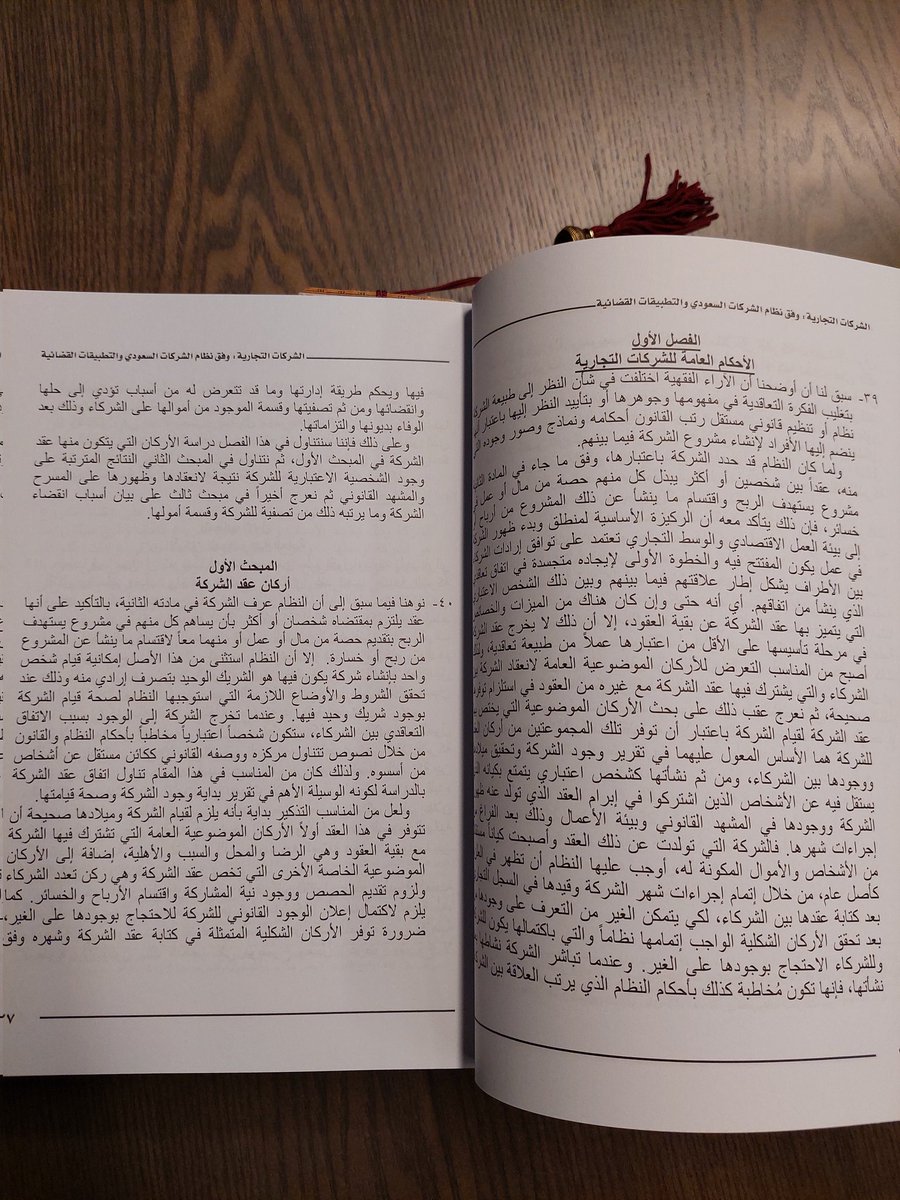 الشركات التجارية، وفق نظام الشركات السعودي والتطبيقات القضائية
الفصل الأول
الأحكام العامة للشركات التجارية
٣٩- سبق لنا أن أوضحنا أن الآراء الفقهية اختلفت في شأن النظر إلى طبيعة
بتغليب الفكرة التعاقدية في مفهومها وجوهرها أو بتأييد النظر إليها باعتبار
نظام أو تنظيم قانوني مستقل رتب القانون أحكامه ونماذج وصور وجوده
ينضم إليها الأفراد لإنشاء مشروع الشركة فيما بينهم.
ولما كان النظام قد حدد الشركة باعتبارها، وفق ما جاء في المادة
منه، عقداً بين شخصين أو أكثر يبذل كل منهم حصة من مال أو عمل
مشروع يستهدف الربح واقتسام ما ينشأ عن ذلك المشروع من أرباح
خسائر، فإن ذلك يتأكد معه أن الركيزة الأساسية لمنطلق وبدء ظهور
إلى بيئة العمل الاقتصادي والوسط التجاري تعتمد على توافق إرادات
في عمل يكون المفتتح فيه والخطوة الأولى لإيجاده متجسدة في اتفاق
بين الأطراف يشكل إطار علاقتهم فيما بينهم وبين ذلك الشخص
الذي ينشأ من اتفاقهم. أي أنه حتى وإن كان هناك من الميزات
التي يتميز بها عقد الشركة عن بقية العقود، إلا أن ذلك لا يخرج عقد
في مرحلة تأسيسها على الأقل من اعتبارها عملاً من طبيعة تعاقدية،
أصبح من المناسب التعرض للأركان الموضوعية العامة لانعقاد الشركة
الشركاء والتي يشترك فيها عقد الشركة مع غيره من العقود في استلزام
صحيحة، ثم نعرج عقب ذلك على بحث الأركان الموضوعية التي
عقد الشركة لقيام الشركة باعتبار أن توفر تلك المجموعتين من أركان
للشركة هما الأساس المعول عليهما في تقرير وجود الشركة وتحقيق
ووجودها بين الشركاء، ومن ثم نشأتها كشخص اعتباري يتمتع بكيانه
يستقل فيه عن الأشخاص الذين اشتركوا في إبرام العقد الذي تولد عنه
الشركة ووجودها في المشهد القانوني وبيئة الأعمال وذلك بعد الفراغ
إجراءات شهرها. فالشركة التي تولدت عن ذلك العقد وأصبحت كياناً
من الأشخاص والأموال المكونة له، أوجب عليها النظام أن تظهر في
كأصل عام، من خلال إتمام إجراءات شهر الشركة وقيدها في السجل
بعد كتابة عقدها بين الشركاء، لكي يتمكن الغير من التعرف على
بعد تحقق الأركان الشكلية الواجب إتمامها نظاماً والتي باكتمالها يكون
وللشركاء الاحتجاج بوجودها على الغير. وعندما تباشر الشركة نشاطها
نشأتها، فإنها تكون مُخاطبة كذلك بأحكام النظام الذي يرتب العلاقة بين
الشركات التجارية، وفق نظام الشركات السعودي والتطبيقات القضائية
فيها ويحكم طريقة إدارتها وما قد تتعرض له من أسباب تؤدي إلى حلها
وانقضائها ومن ثم تصفيتها وقسمة الموجود من أموالها على الشركاء وذلك بعد
الوفاء بديونها والتزاماتها.
وعلى ذلك فإننا سنتناول في هذا الفصل دراسة الأركان التي يتكون منها عقد
الشركة في المبحث الأول، ثم نتناول في المبحث الثاني النتائج المترتبة على
وجود الشخصية الاعتبارية للشركة نتيجة لانعقادها وظهورها على المسرح
والمشهد القانوني ثم نعرج أخيراً في مبحث ثالث على بيان أسباب انقضاء
الشركة وما يرتبه ذلك من تصفية للشركة وقسمة أمولها.
المبحث الأول
أركان عقد الشركة
٤٠- نوهنا فيما سبق إلى أن النظام عرف الشركة في مادته الثانية، بالتأكيد على أنها
عقد يلتزم بمقتضاه شخصان أو أكثر بأن يساهم كل منهم في مشروع يستهدف
الربح بتقديم حصة من مال أو عمل أو منهما معاً لاقتسام ما ينشأ عن المشروع
من ربح أو خسارة. إلا أن النظام استثنى من هذا الأصل إمكانية قيام شخص
واحد بإنشاء شركة يكون فيها هو الشريك الوحيد بتصرف إرادي منه وذلك عند
تحقق الشروط والأوضاع اللازمة التي استوجبها النظام لصحة قيام الشركة
بوجود شريك وحيد فيها. وعندما تخرج الشركة إلى الوجود بسبب الاتفاق
التعاقدي بين الشركاء، ستكون شخصاً اعتبارياً مخاطباً بأحكام النظام والقانون
من خلال نصوص تتناول مركزه ووصفه القانوني ككائن مستقل عن أشخاص
من أسسوه. ولذلك كان من المناسب في هذا المقام تناول اتفاق عقد الشركة
بالدراسة لكونه الوسيلة الأهم في تقرير بداية وجود الشركة وصحة قيامتها.
ولعل من المناسب التذكير بداية بأنه يلزم لقيام الشركة وميلادها صحيحة أن
تتوفر في هذا العقد أولاً الأركان الموضوعية العامة التي تشترك فيها الشركة
مع بقية العقود وهي الرضا والمحل والسبب والأهلية، إضافة إلى الأركان
الموضوعية الخاصة الأخرى التي تخص عقد الشركة وهي ركن تعدد الشركاء
ولزوم تقديم الحصص ووجود نية المشاركة واقتسام الأرباح والخسائر. كما
يلزم لاكتمال إعلان الوجود القانوني للشركة للاحتجاج بوجودها على الغير،
ضرورة توفر الأركان الشكلية المتمثلة في كتابة عقد الشركة وشهره وفق